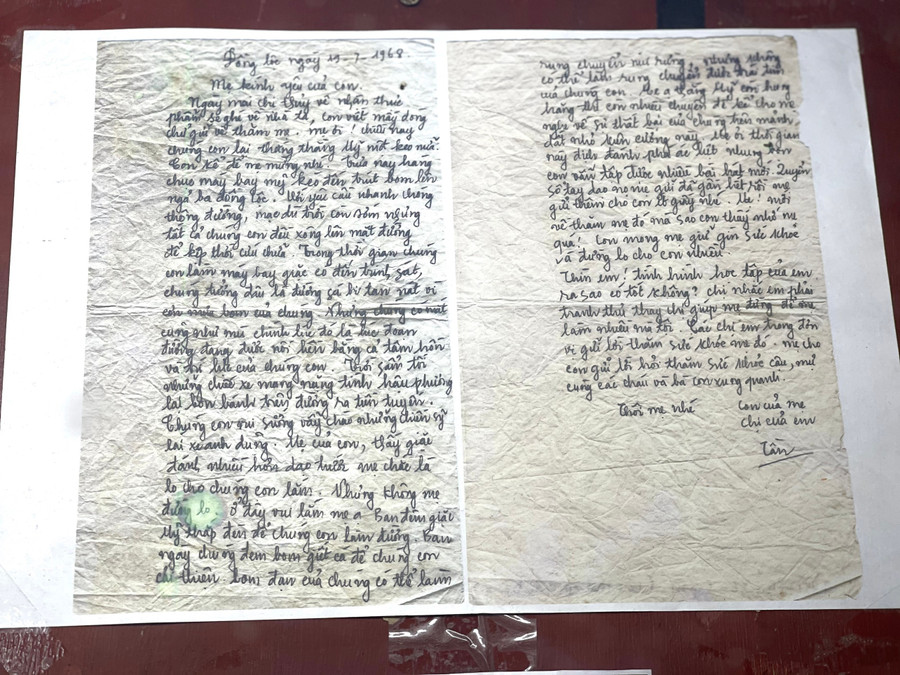 Đồng lộc ngày 19-7-1968.
Mẹ kính yêu của con.
Ngày mai chị Thủy về nhận thực
phẩm sẽ ghé về nhà ta, con viết mấy dòng
chữ gửi về thăm mẹ. mẹ ơi! chiều nay
chúng con lại thắng thằng Mỹ một keo nữa.
Con kể để mẹ mừng nhé. trưa nay hàng
chục máy bay mỹ kéo đến trút bom lên
ngã ba đồng lộc. Với yêu cầu nhanh chóng
thông đường, mặc dù trời còn sớm nhưng
tất cả chúng con đều xông lên mặt đường
để kịp thời cứu chữa. Trong thời gian chúng
con làm máy bay giặc có đến trinh sát,
chúng tưởng đâu là đường sá bị tan nát vì
cơn mưa bom của chúng. Nhưng chúng có biết
cũng như mũi chính lúc đó là lúc đoạn
đường đang được nối liền bằng cả tâm hồn
và trí lực của chúng con. Trời sẩm tối
những chiếc xe mang nặng tình hậu phương
lại bon bánh trên đường ra tiền tuyến.
Chúng con vui sướng vẫy chào những chiến sỹ
lái xe anh dũng. Mẹ của con, thấy giặc
đánh nhiều hơn dạo trước mẹ chắc là
lo cho chúng con lắm. Nhưng không mẹ
đừng lo. ở đây vui lắm mẹ ạ Ban đêm giặc
Mỹ thắp đèn để chúng con làm đường. Ban
ngày chúng đem bom giết cá để chúng con
cải thiện bom đạn của chúng có thể làm
rung chuyển núi rừng nhưng không
có thể làm rung chuyển được trái tim
của chúng con. Mẹ ạ tháng Mỹ con hong
hăng thì con nhiều chuyện để kể cho mẹ
nghe về sự thất bại của chúng trên mảnh
đất nhỏ kiên cường này. Mẹ ơi thời gian
này địch đánh phá ác liệt nhưng bọn
con vẫn tập được nhiều bài hát mới. Quyển
sổ tay dạo nọ mẹ gửi đã gần hết rồi mẹ
gửi thêm cho con ít giấy nhé. Mẹ! mới
về thăm mẹ đó mà sao con thấy nhớ mẹ
quá! Con mong mẹ giữ gìn sức khỏe
và đừng lo cho con nhiều.
Thìn em! tình hình học tập của em
ra sao có tốt không? chị nhắc em phải
tranh thủ thay chị giúp mẹ đừng để mẹ
làm nhiều mà tội. Các chị em trong đơn
vị gửi lời thăm sức khỏe mẹ đó. mẹ cho
con gửi lời hỏi thăm sức khỏe cậu, mự
cùng các cháu và bà con xung quanh.
Thôi mẹ nhé
Con của mẹ
chị của em
Tần